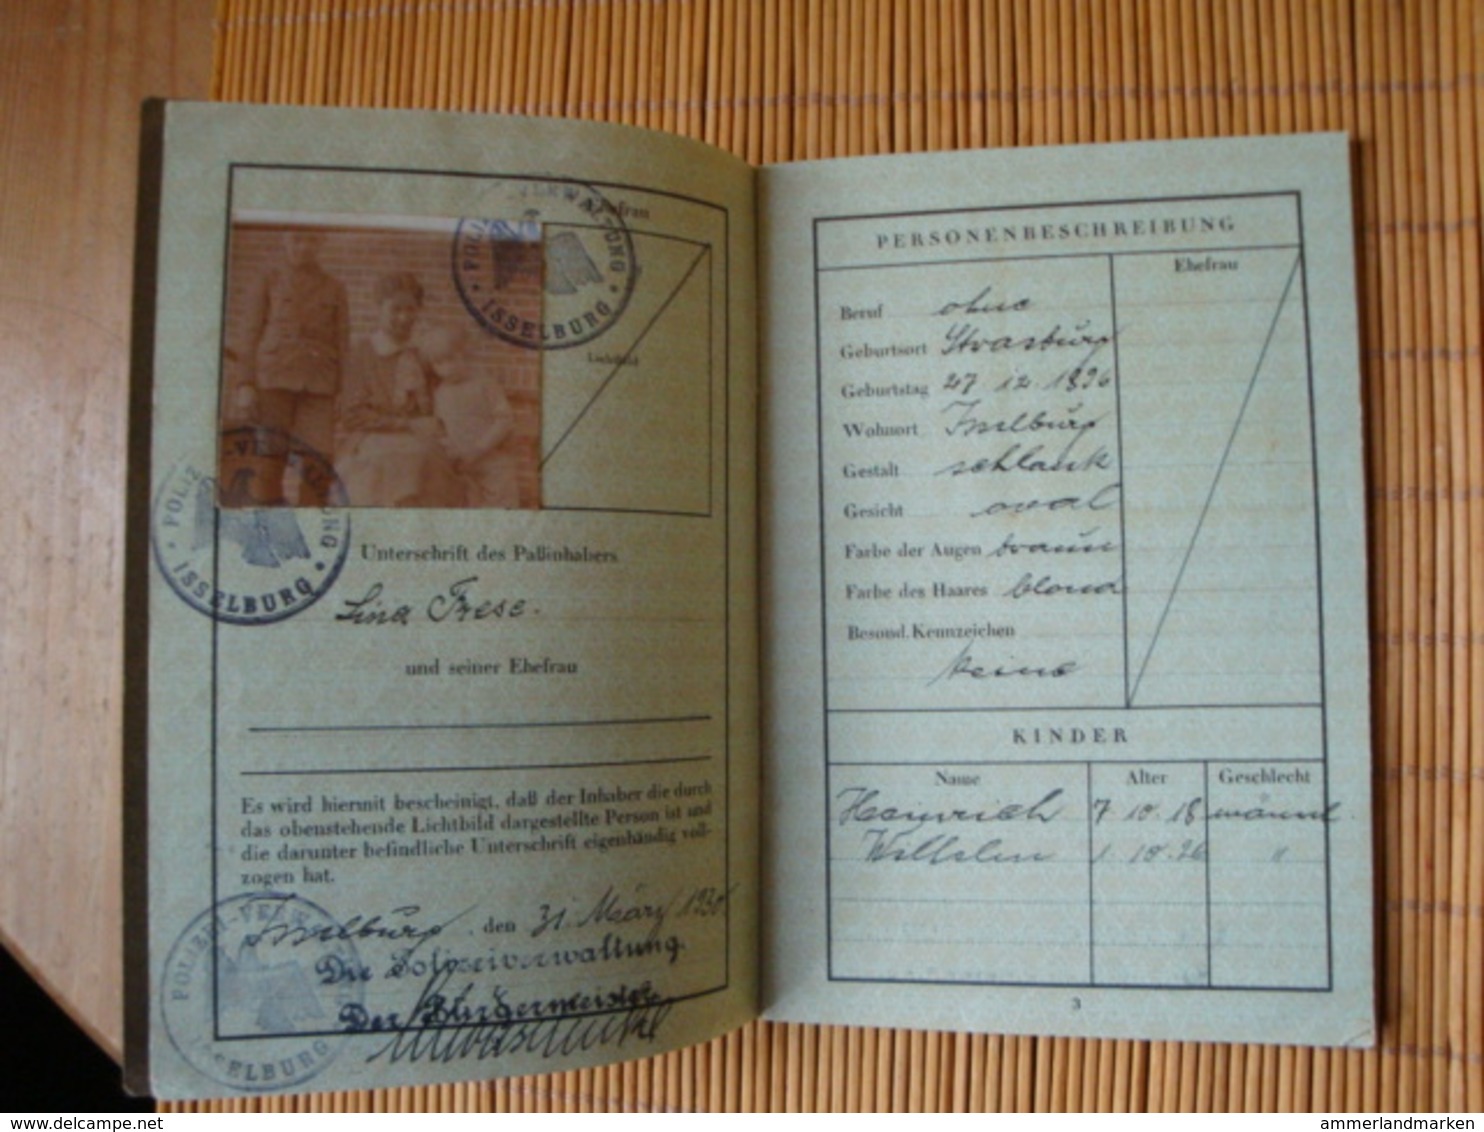 Ehefrau
POLIZEI-VERWALTUNG
ISSELBURG
Lichtbild
POLIZEI-VERWALTUNG
ISSELBURG
Unterschrift des Paßinhabers
Lina Frese.
und seiner Ehefrau
Es wird hiermit bescheinigt, daß der Inhaber die durch
das obenstehende Lichtbild dargestellte Person ist und
die darunter befindliche Unterschrift eigenhändig voll-
zogen hat.
Isselburg, den 31. März 1930
Die Polizeiverwaltung.
Der Bürgermeister
POLIZEI-VERW
ISSELBURG
PERSONENBESCHREIBUNG
Ehefrau
Beruf ohne
Geburtsort Strasburg
Geburtstag 27 12. 1896
Wohnort Isselburg
Gestalt schlank
Gesicht oval
Farbe der Augen braun
Farbe des Haares blond
Besond. Kennzeichen
keine
KINDER
Name Alter Geschlecht
Heinrich 7 10. 18 männl.
Wilhelm 1 10. 26 "
3
ammerlandmarken